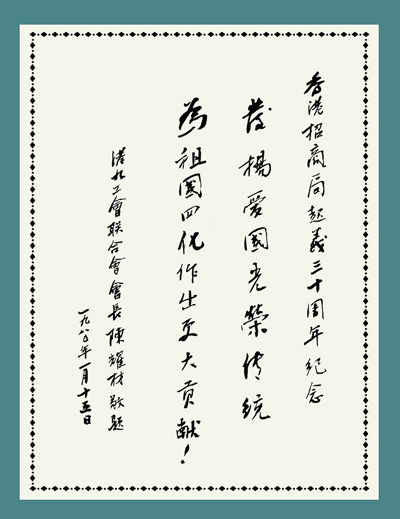 香港招商局起義三十周年纪念
發揚爱國光榮传统
為祖國四化作出更大贡献！
港九工會联合會會長陳耀材敬题
一九八〇年一月十五日